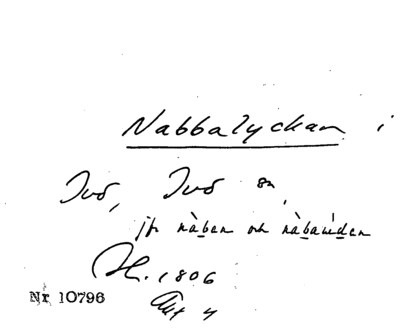 Nabbalyckan i
Ivö, Ivö sn,
jfr nàben och nàbaúden
H. 1806
Akt 4
Nr 10796